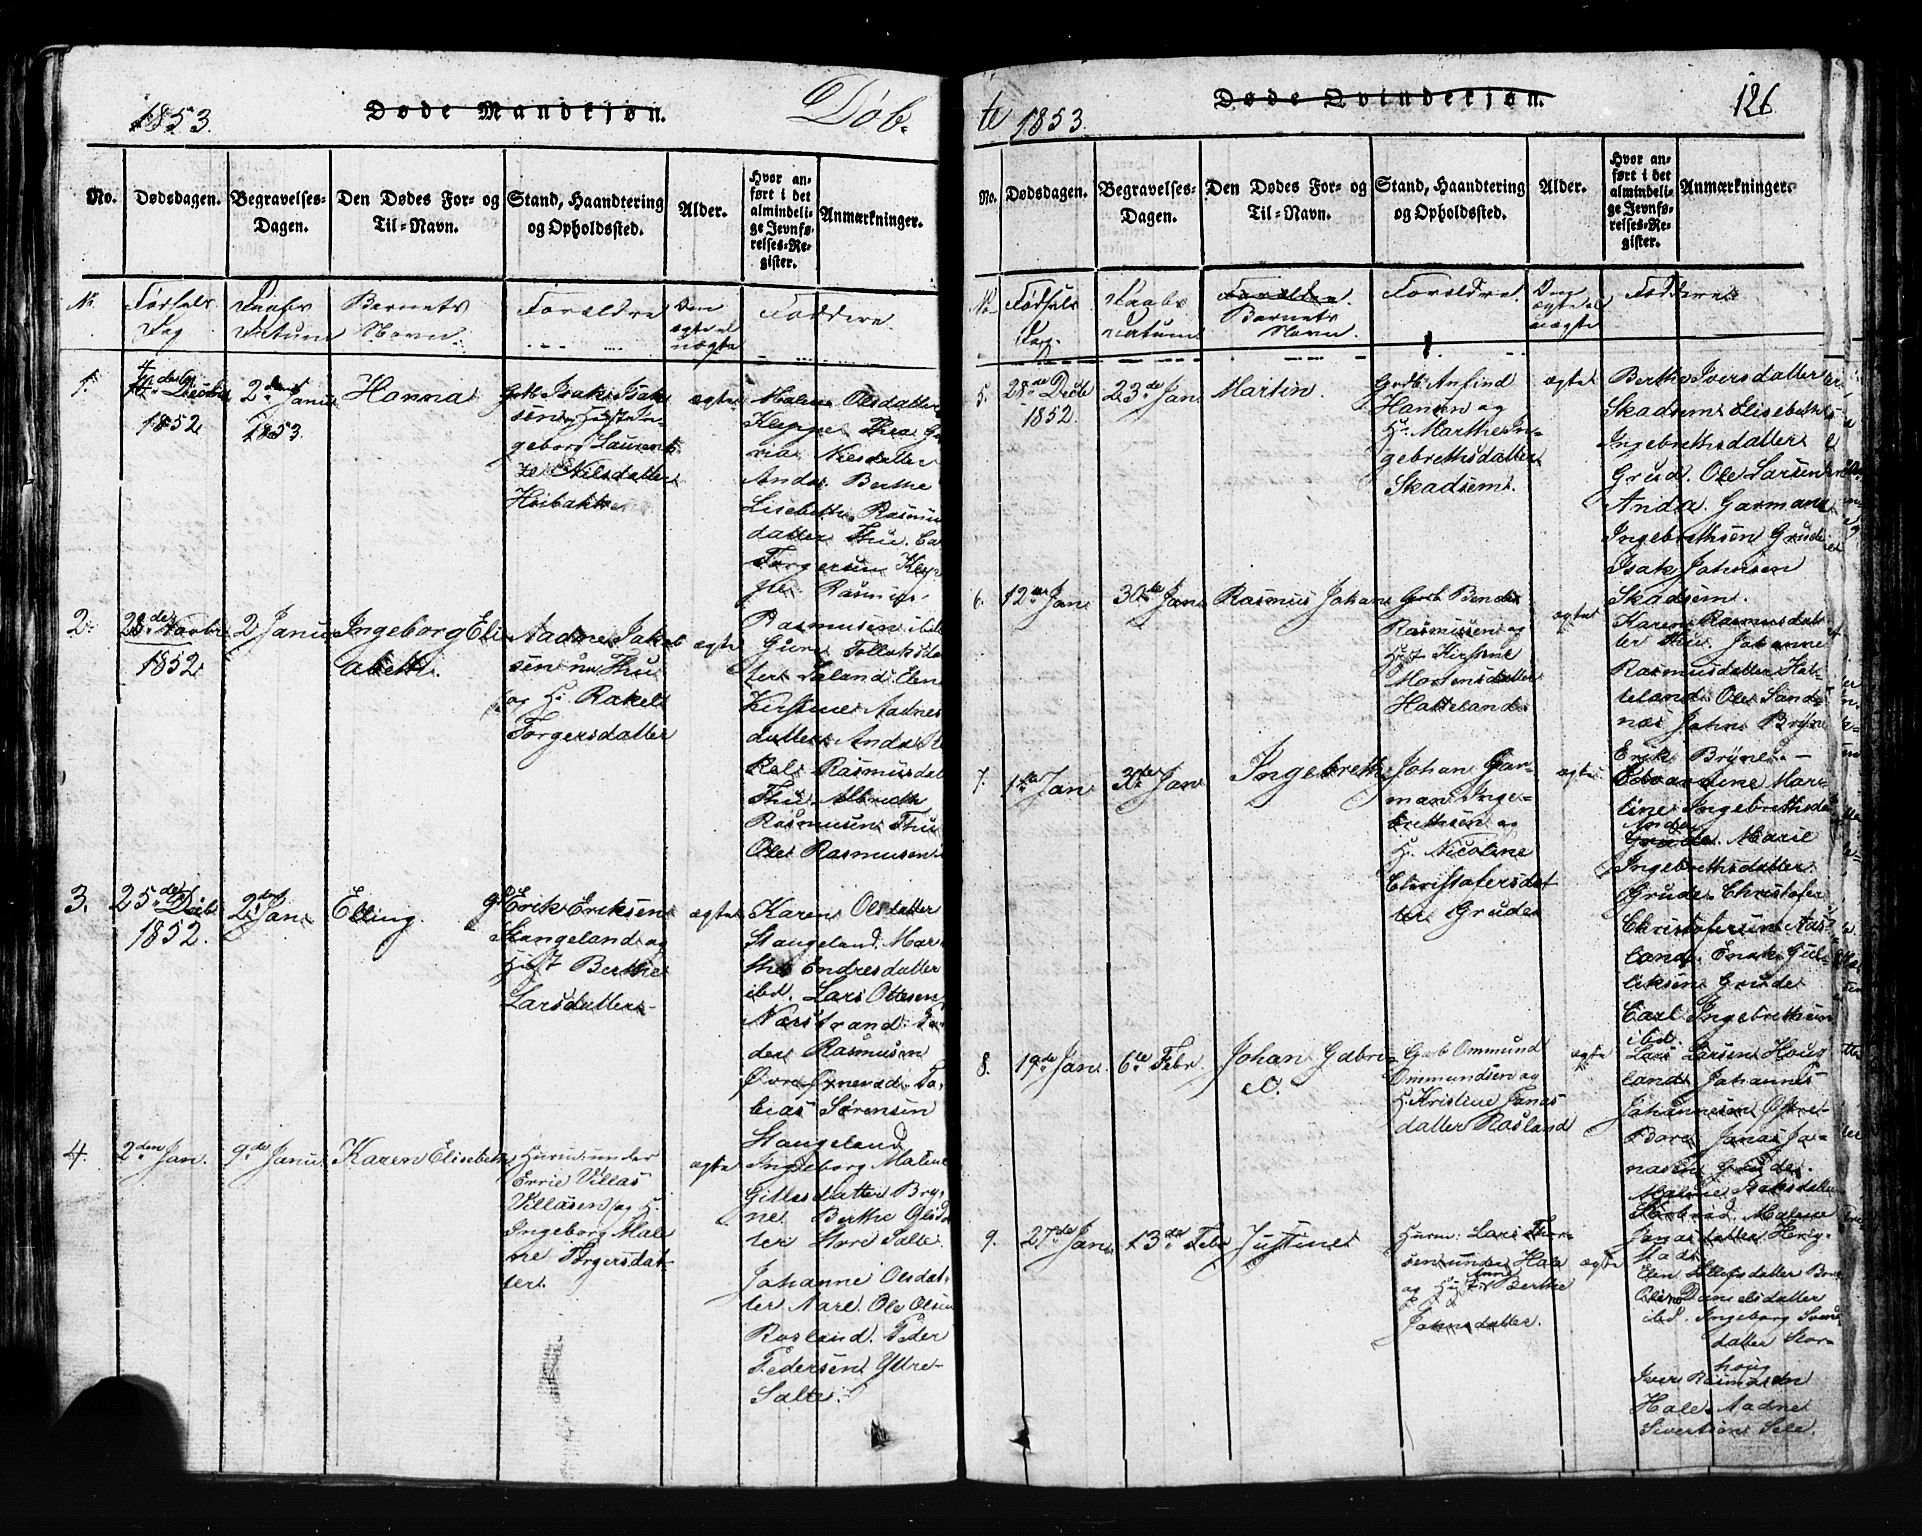 1853.
Døde Mandkjøn.
Døb-
No.
Dødsdagen.
Begravelses-
Dagen.
Den Dødes For- og
Til-Navn.
Stand, Haandtering
og Opholdssted.
Alder.
Hvor an-
ført i det
almindeli-
ge Jevnfø-
relses-Re-
gister.
Anmærkninger.
No
Fødsels
Dag
Daabs
Datum
Barnets
Navn.
Forældre
Om
ægte el
uægte
Faddere.
1.
Decbr
1852
2den Janu
1853.
Hanna
Isak Isak-
sen Hust In-
geborg Laurent-
ze Nilsdatter
Hoibakke
ægte
Malene Olsdatter
Kleppe Thea Ga-
ria Nilsdatter
Anda. Berthe
Lisebeth Rasmus
datter Thu.
Torgersen Klep-
pe Rasmus
Rasmusen ibd
2.
28de Novbr
1852
2 Janu
Ingeborg Eli
abeth.
Aadne Jakob
sen Thu
og H. Rakel
Torgersdatter
ægte
Guri Tollaksda
ter Laland. Elen
Kirstine Aadnes
datter Anda R
kel Rasmusdat
Thu Albreth
Rasmusen Thu
Ole Rasmusen
3.
25de Decb
1852.
2den Jan
Elling
Erik Eriksen
Stangeland og
Hust Berthe
Larsdatter
ægte
Karen Olsdatter
Stangeland. Mar-
the Endresdatter
ibd. Lars Ottesen
Nærstrand.
Rasmusen
Øvre To-
bias Sørensen
Stangeland
4.
2den Jan.
9de Janu
Karen Elisebeth
Husm. under
Erric Villas
Villasen og H.
Ingeborg Male
ne Torgersdat-
ter.
ægte
Ingeborg Malene
Gittesdatter Bry-
ne Berthe
ter Store Salte.
Johanne Olsdat-
ter Nare. Ole Olsen
Rosland. Peder
Pedersen Ydtre-
Salte.
te 1853.
Døde Qvindekjøn.
126
No.
Dødsdagen.
Begravelses-
Dagen.
Den Dødes For- og
Til-Navn.
Stand, Haandtering
og Opholdssted.
Alder.
Hvor an-
ført i det
almindeli-
ge Jevnfø-
relses-Re-
gister.
Anmærkninger
No
Fødsels
Dag.
Daabs
Datum
Forældre.
Barnets
Navn.
Forældre.
Om
ægte el
uægte
Faddere
5.
28de Decb
1852.
23de Jan
Martin.
Grdb. Anfind
Hansen og
H. Marthe In-
gebrethsdatter
Skadsem.
ægte
Berthe Iversdatter
Skadsem Elisebeth
Ingebrethsdatter
Grud. Ole Larsen
Anda. Garmann
Ingebrethsen Grude
Isak Johnsen
Skadsem.
6.
12te Jan
30de Jan
Rasmus Johan
Grdb. Bendix
Rasmusen og
Hust Kirstine
Mortensdatter
Hatteland
ægte
Karen Rasmusdat-
ter Thu Johanne
Rasmusdatter Hat-
teland. Ole Sand-
næs John Bryne
Erik Bryne. -
7.
1te Jan
30de Jan
Ingebreth
Johan Gar-
man Inge-
brethsen og
H. Nicoline
Christofersdat
ter Grude
ægte
Edvardine Mar-
tine Ingebrethsda
Anda
Grude. Marie
Ingebrethsdatter
Grude. Christofer
Christofersen Aas-
land. Enok Gul-
liksen Grude
Carl Ingebrethsen
ibd.
8.
19de Jan.
6te Febr.
Johan Gabri-
el.
Grdb. Ommund
Ommundsen og
H. Kristine Janas
datter Rosland
ægte
Lars Larsen Houg
land. Johannes
Johannesen Østre-
Bore. Janas Ja-
nasen Grude.
Malene Isaksdatter
Malene
Janasdatter Herig-
stad.
9.
27de Jan
13de Febr
Justine
Husm: Lars Thor-
sen under Hale
og Hust Anne Berthe
Johnsdatter.
ægte
Elen Tollefsdatter Bore
Oline Danielsdatter
ibd. Ingeborg
datter Stor-
houg
Iver Rasmusen
Hale. Aadne
Sivertsen Sele.